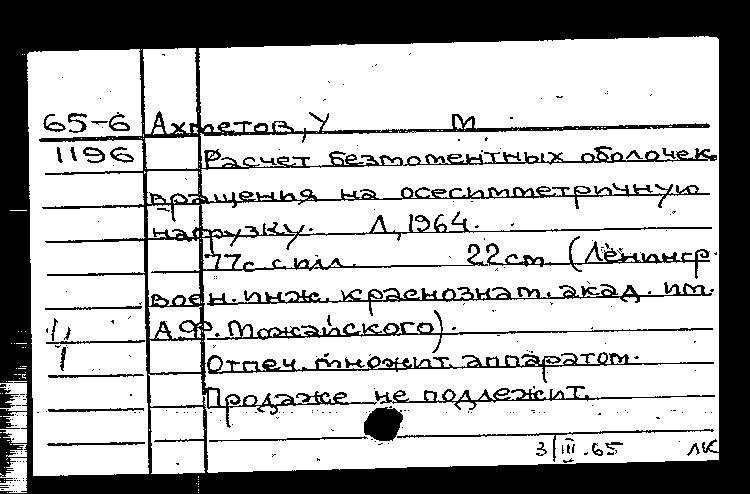 65-6 Ахметов, У М
1196 Расчет безмоментных оболочек
вращения на осесимметричную
нагрузку. Л, 1964.
77с с илл. 22 см (Ленингр.
воен. инж. краснознам. акад. им.
А.Ф. Можайского).
Отпеч. множит. аппаратом.
Продаже не подлежит.
3/III.65 ЛК